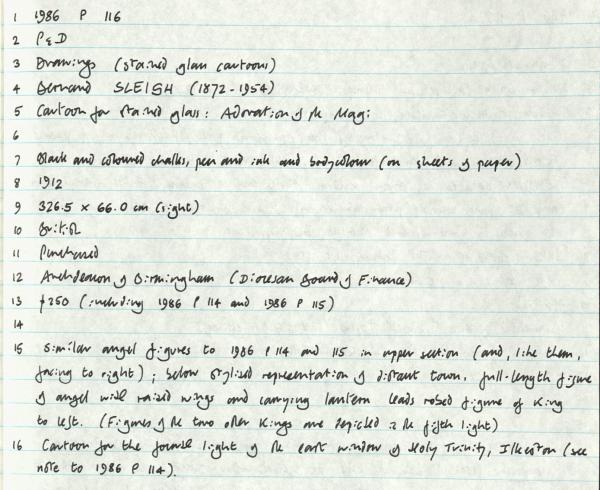 1 1986 P 116
2 P&D
3 Drawings (stained glass cartoons)
4 Bernard SLEIGH (1872-1954)
5 Cartoon for stained glass: Adoration of the Magi
6
7 Black and coloured chalks, pen and ink and bodycolour (on sheets of paper)
8 1912
9 326.5 × 66.0 cm (sight)
10 British
11 Purchased
12 Archdeacon of Birmingham (Diocesan Board of Finance)
13 £250 (including 1986 P 114 and 1986 P 115)
14
15 Similar angel figures to 1986 P 114 and 115 in upper section (and, like them,
facing to right); below stylized representation of distant town. Full-length figure
of angel with raised wings and carrying lantern leads robed figure of King
to left. (Figures of the two other Kings are depicted in the fifth light)
16 Cartoon for the fourth light of the east window of Holy Trinity, Ilkeston (see
note to 1986 P 114).